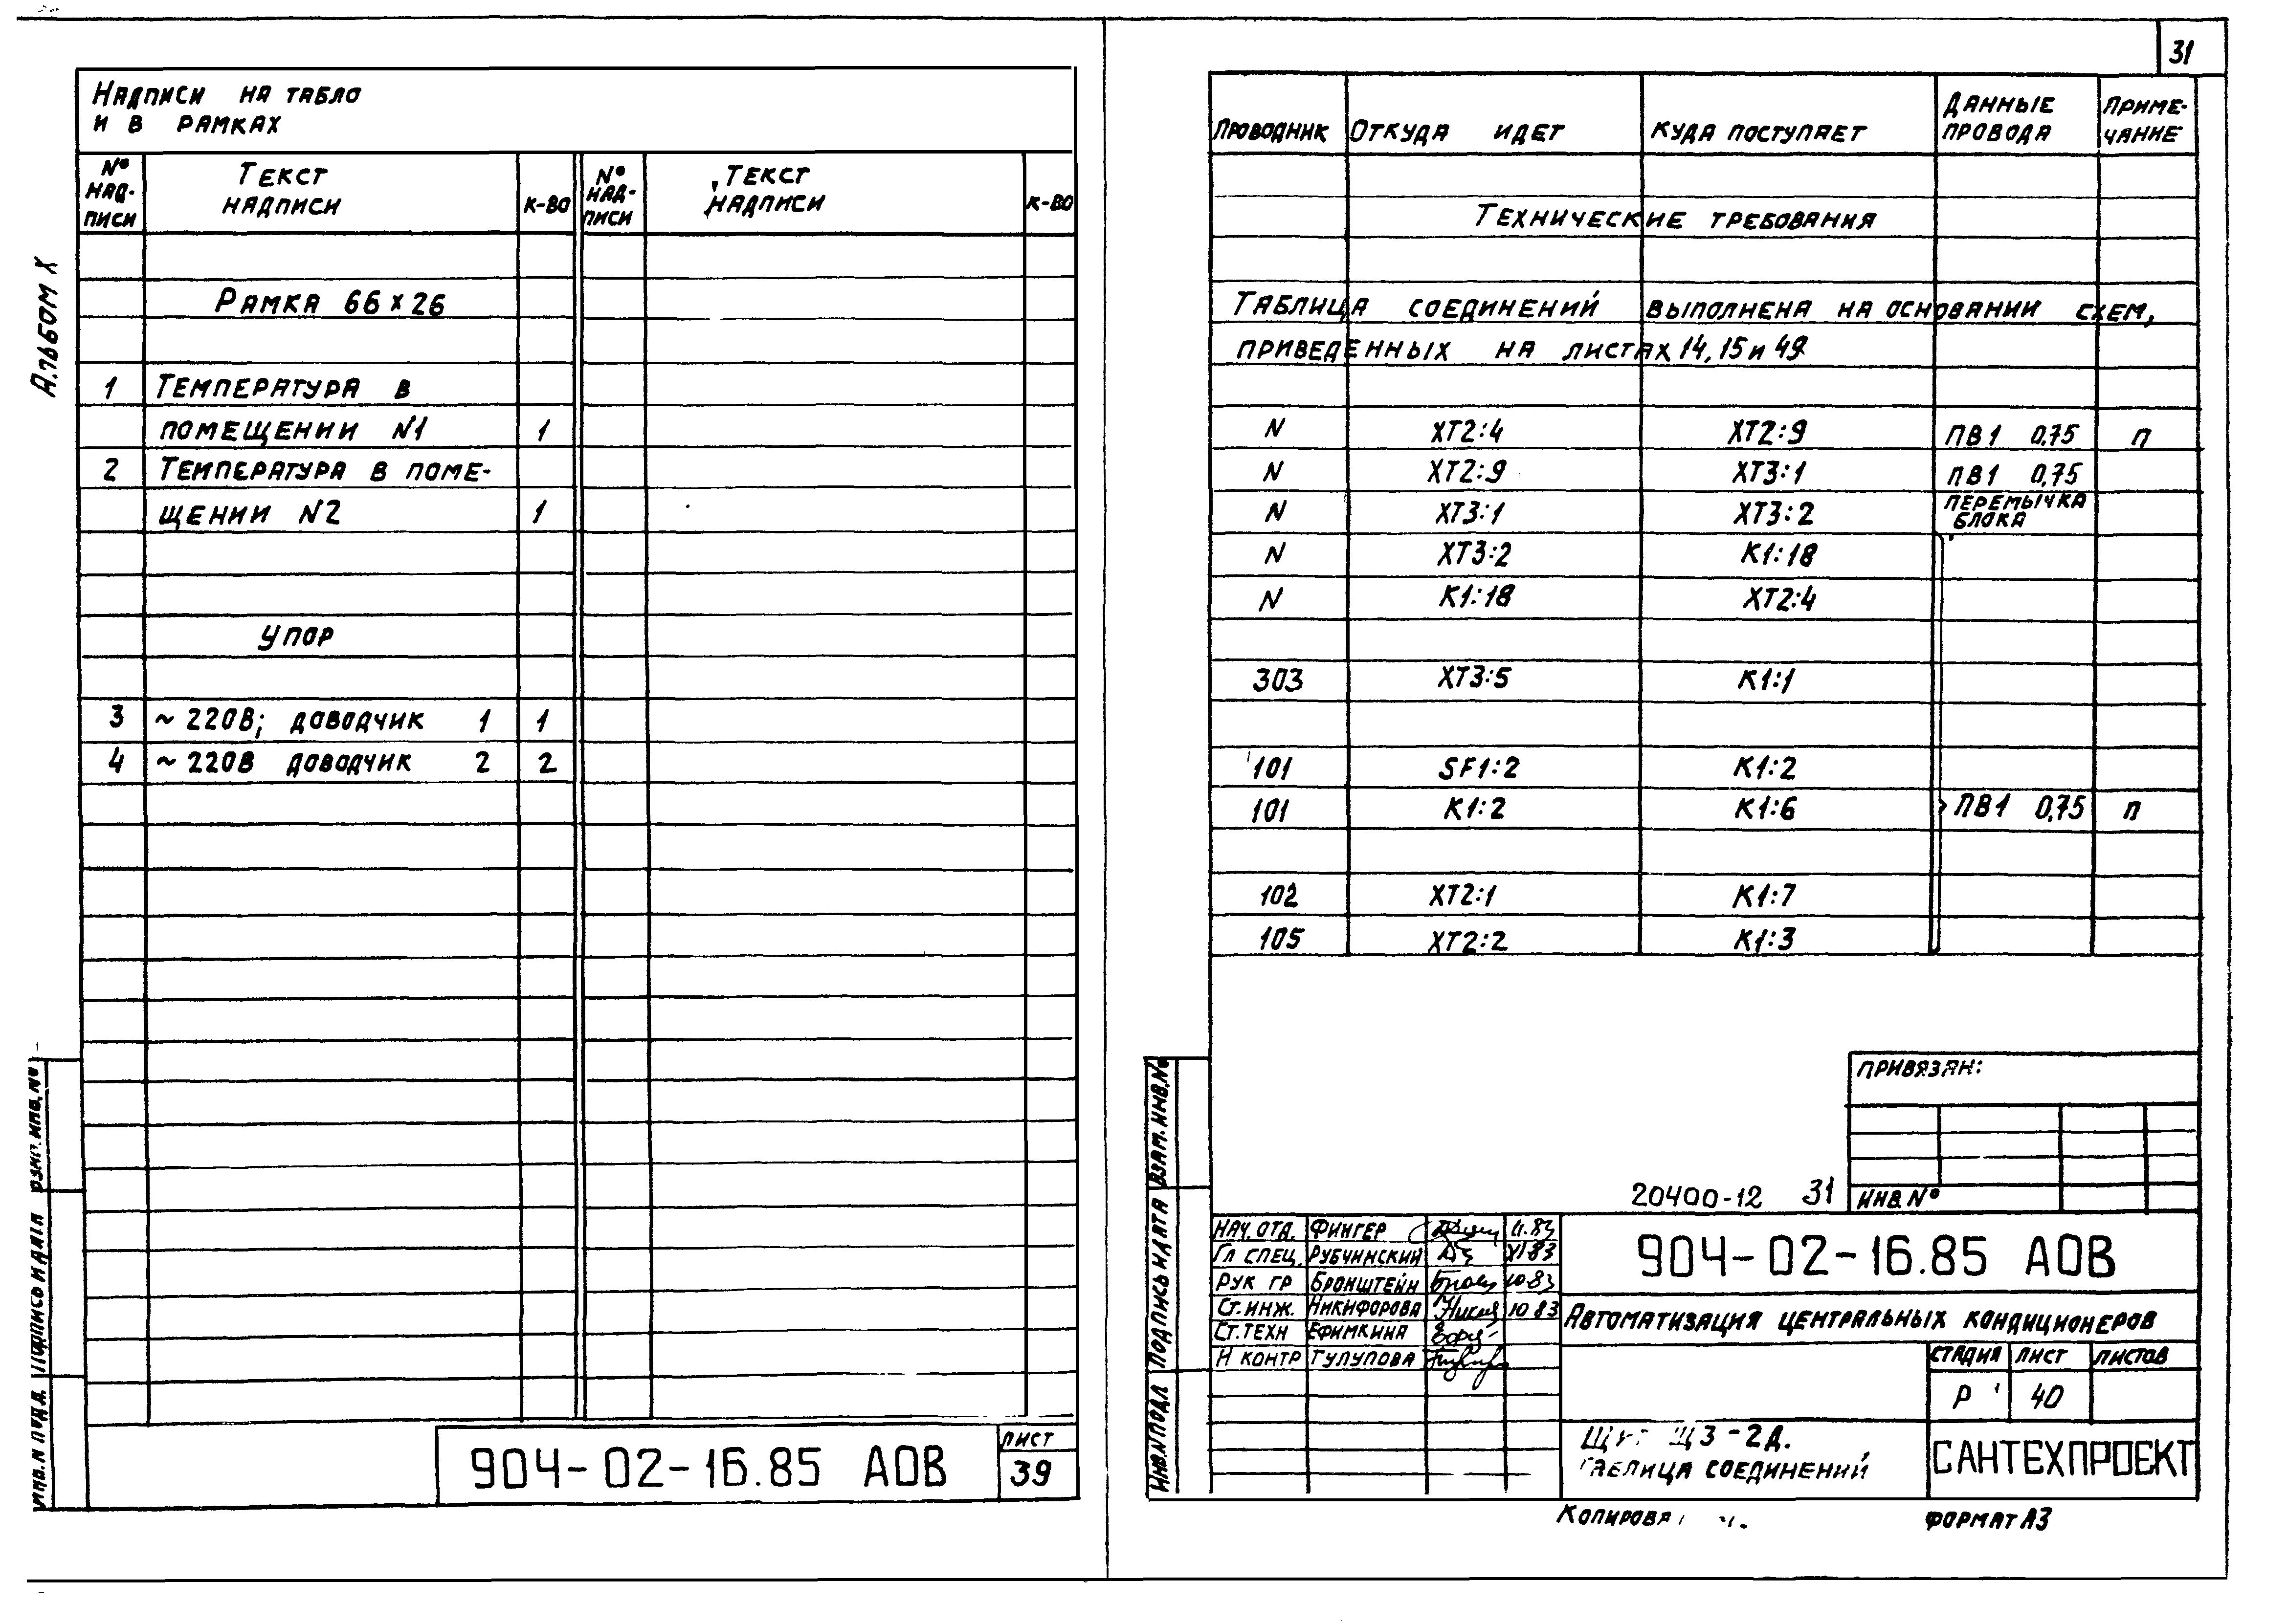 31
Альбом X
Надписи на табло
и в рамках
№ надписи Текст надписи к-во № надписи Текст надписи к-во
Рамка 66×26
1 Температура в
помещении N1 1
2 Температура в поме-
щении N2 1
Упор
3 ~220В; доводчик 1 1
4 ~220В доводчик 2 2
904-02-16.85 АОВ
лист
39
Проводник Откуда идет Куда поступает Данные провода Приме-чание
Технические требования
Таблица соединений выполнена на основании схем,
приведенных на листах 14, 15 и 49.
N ХТ2:4 ХТ2:9 ПВ1 0,75 п
N ХТ2:9 ХТ3:1 ПВ1 0,75
N ХТ3:1 ХТ3:2 перемычка блока
N ХТ3:2 К1:18
N К1:18 ХТ2:4
303 ХТ3:5 К1:1
101 SF1:2 К1:2
101 К1:2 К1:6 ПВ1 0,75 п
102 ХТ2:1 К1:7
105 ХТ2:2 К1:3
Привязан:
Инв.№
20400-12 31
Взам.инв.№
Подпись и дата
Инв.N подл
Нач.отд. Фингер 11.83
Гл спец. Рубчинский XI 83
Рук гр Бронштейн 10.83
Ст.инж. Никифорова 10 83
Ст.техн Ефимкина
Н контр Тулупова
904-02-16.85 АОВ
Автоматизация центральных кондиционеров
стадия лист листов
Р 40
Щ3-2Д.
Таблица соединений
САНТЕХПРОЕКТ
Формат А3